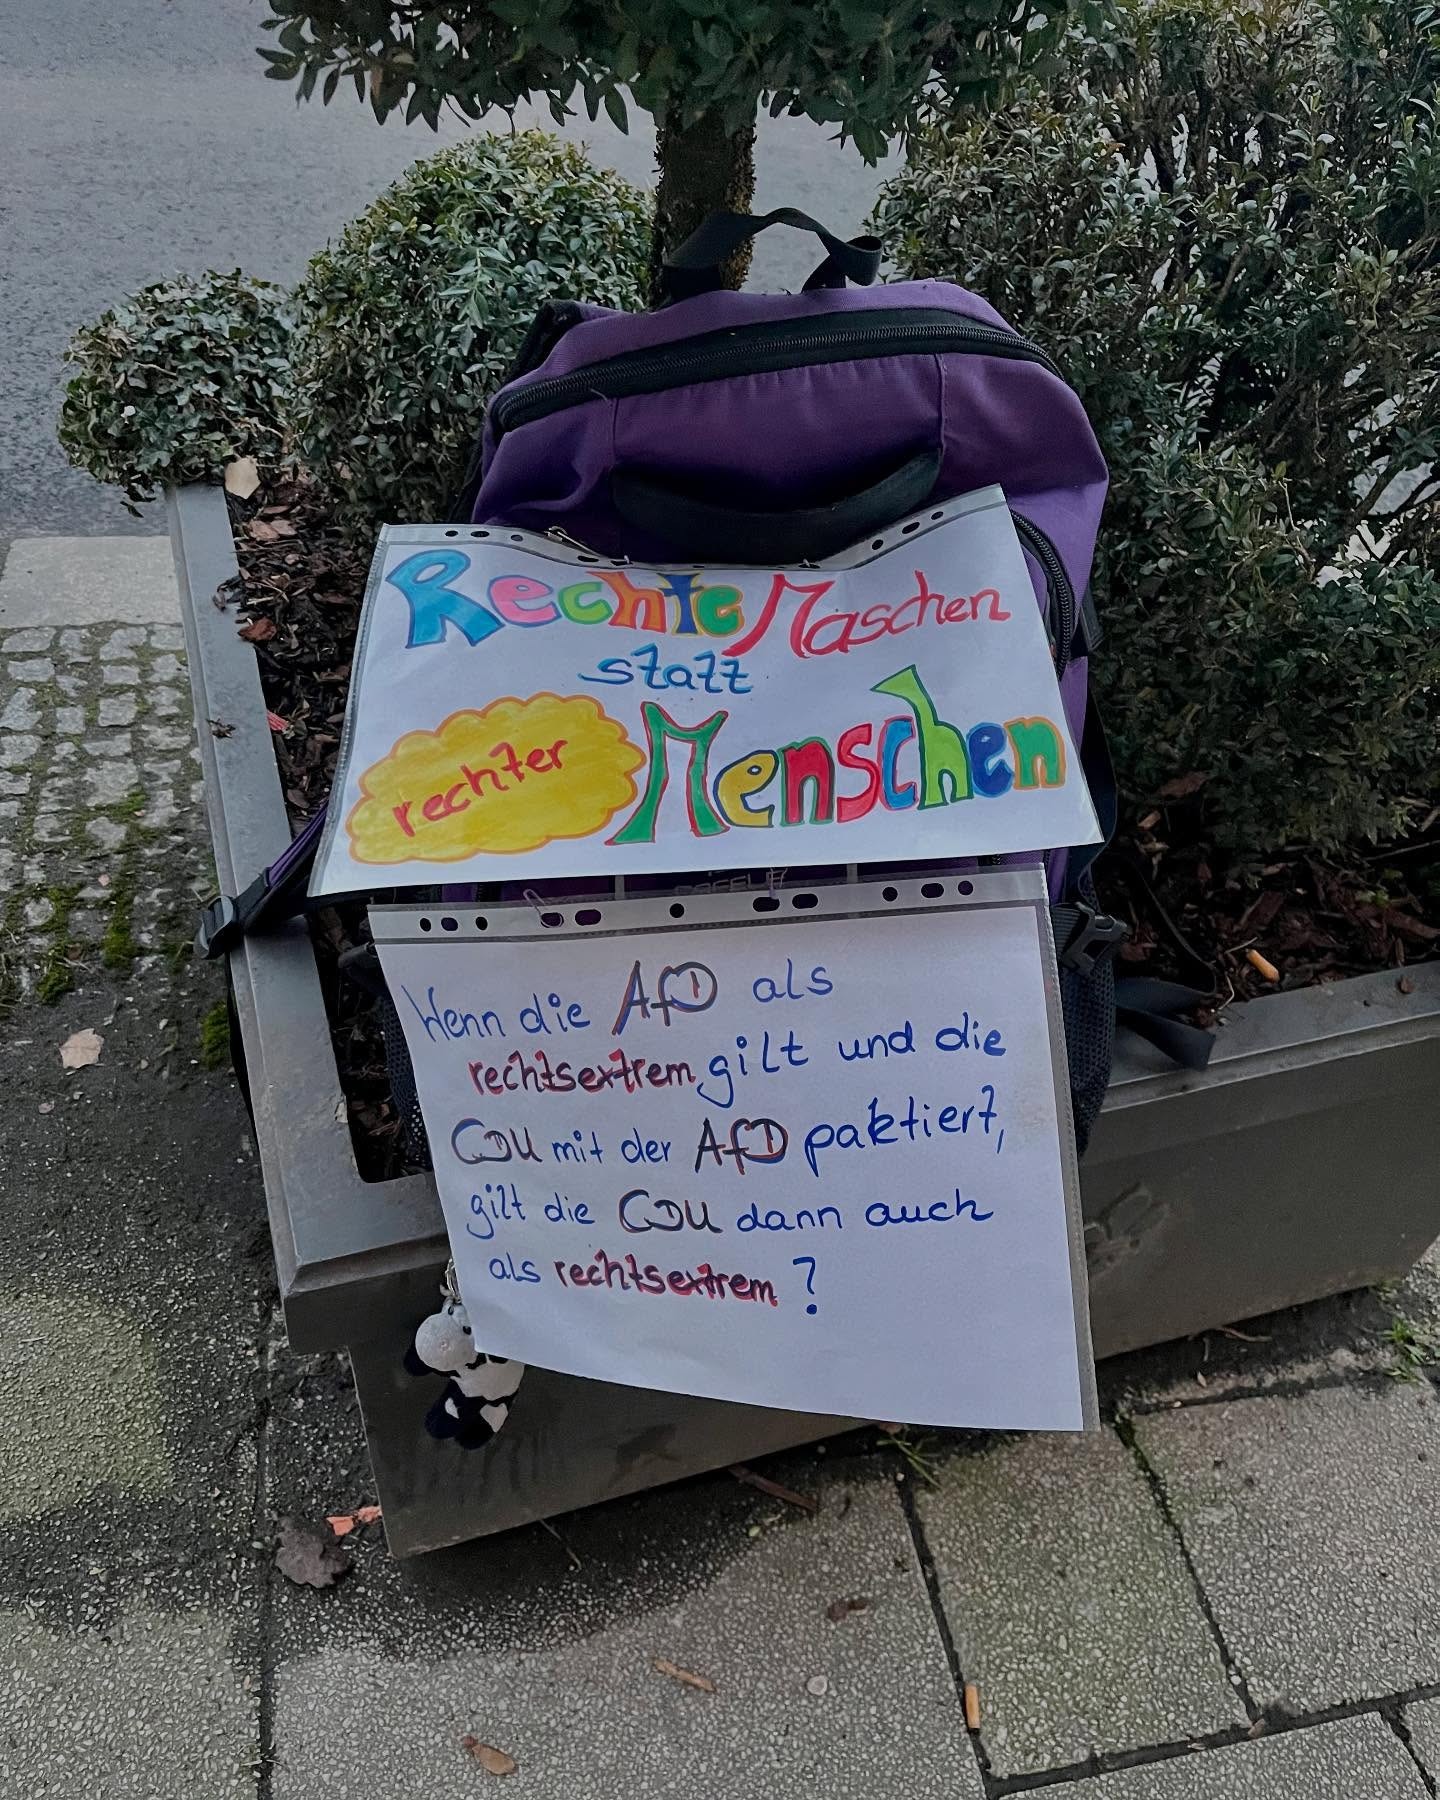 Rechte Maschen
statt
rechter Menschen
Wenn die AfD als
rechtsextrem gilt und die
CDU mit der AfD paktiert,
gilt die CDU dann auch
als rechtsextrem?